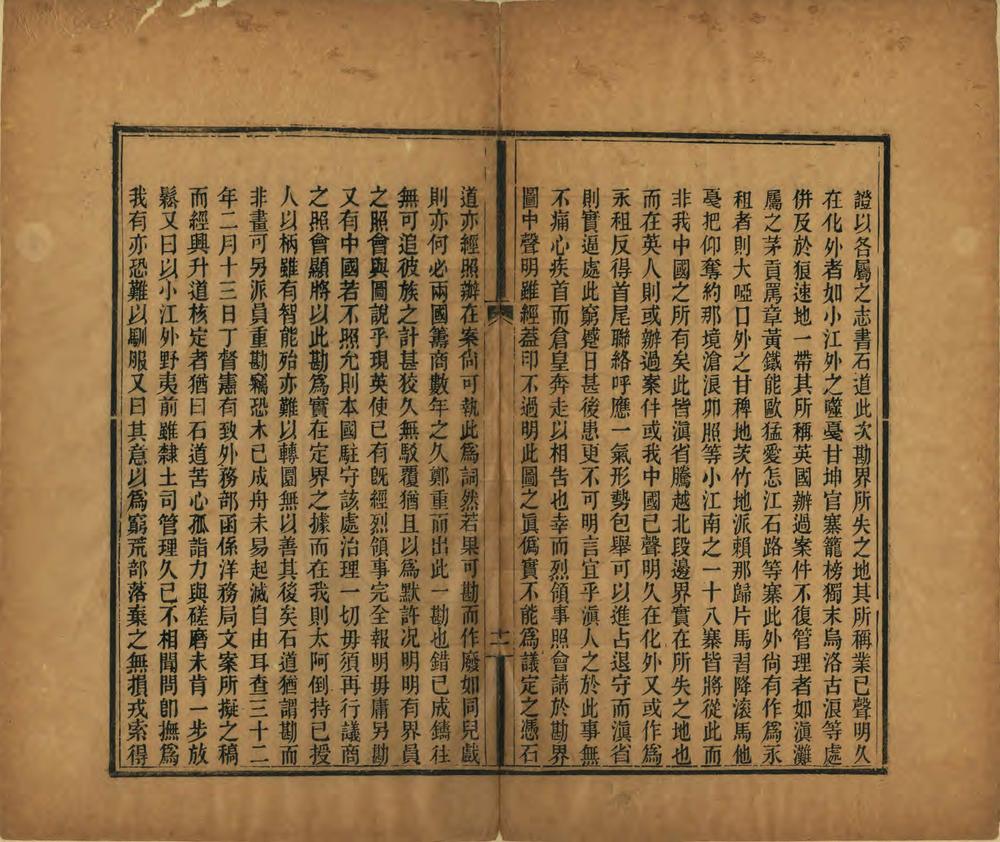 證以各屬之志書石道此次勘界所失之地其所稱業已聲明久
在化外者如小江外之噬戞甘坤官寨籠榜獨末烏洛古浪等處
併及於狼速地一帶其所稱英國辦過案件不復管理者如滇灘
屬之茅貢罵章黃鐵能歐猛愛怎江石路等寨此外尙有作爲永
租者則大啞口外之甘稗地茨竹地派賴那歸片馬習降滚馬他
戞把仰奪約那境滄浪卯照等小江南之一十八寨皆將從此而
非我中國之所有矣此皆滇省騰越北段邊界實在所失之地也
而在英人則或辦過案件或我中國已聲明久在化外又或作爲
永租反得首尾聯絡呼應一氣形勢包舉可以進占退守而滇省
則實逼處此窮蹙日甚後患更不可明言宜乎滇人之於此事無
不痛心疾首而倉皇奔走以相告也幸而烈領事照會請於勘界
圖中聲明雖經蓋印不過明此圖之眞僞實不能爲議定之憑石
十一
道亦經照辦在案尙可執此爲詞然若果可勘而作廢如同兒戲
則亦何必兩國籌商數年之久鄭重而出此一勘也錯已成鑄往
無可追彼族之計甚狡久無駁覆猶且以爲默許况明明有界員
之照會與圖說乎現英使已有旣經烈領事完全報明毋庸另勘
又有中國若不照允則本國駐守該處治理一切毋須再行議商
之照會顯將以此勘爲實在定界之據而在我則太阿倒持已授
人以柄雖有智能殆亦難以轉圜無以善其後矣石道猶謂勘而
非畫可另派員重勘竊恐木已成舟未易起滅自由耳查三十二
年二月十三日丁督憲有致外務部函係洋務局文案所擬之稿
而經興升道核定者猶曰石道苦心孤詣力與磋磨未肯一步放
鬆又曰以小江外野夷前雖隸土司管理久已不相聞問卽撫爲
我有亦恐難以馴服又曰其意以爲窮荒部落棄之無損戎索得